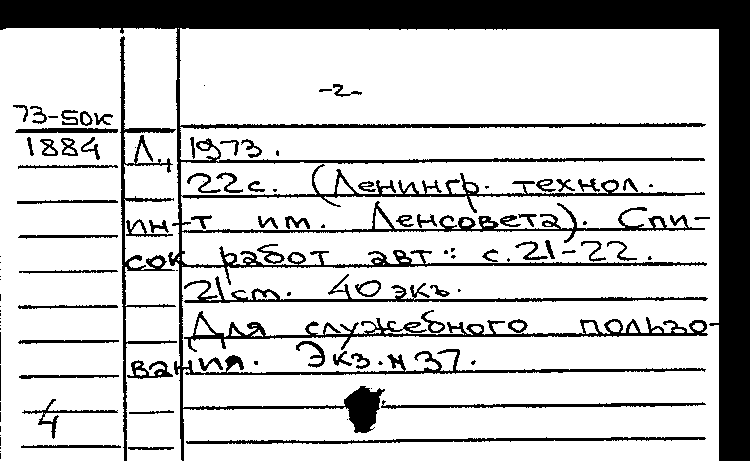 -2-
73-50к
1884 Л., 1973.
22с. (Ленингр. технол.
ин-т им. Ленсовета). Спи-
сок работ авт.: с.21-22.
21см. 40 экз.
Для служебного пользо-
вания. Экз.№37.
4